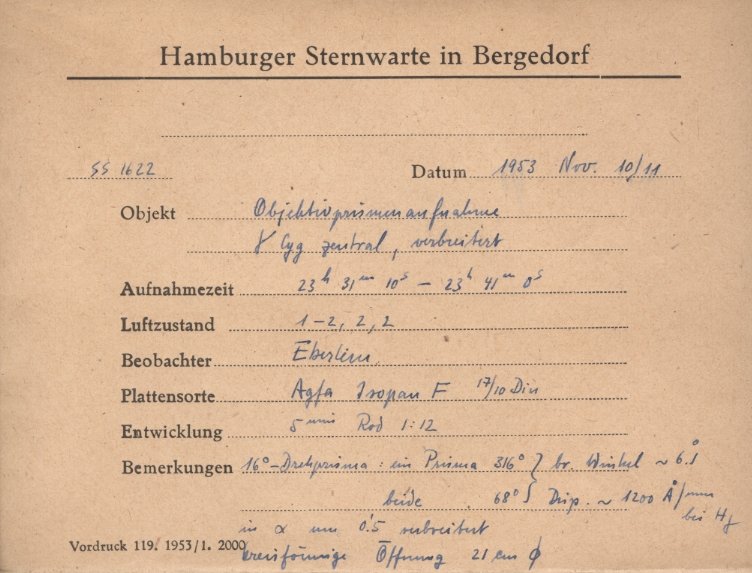 Hamburger Sternwarte in Bergedorf
SS 1622
Datum 1953 Nov. 10/11
Objekt Objektivprismenaufnahme
γ Cyg zentral, verbreitert
Aufnahmezeit 23ʰ 31ᵐ 10ˢ – 23ʰ 41ᵐ 0ˢ
Luftzustand 1–2, 2, 2
Beobachter
Plattensorte Agfa Isopan F 17/10 Din
Entwicklung 5 min Rod 1:12
Bemerkungen 16°-Drehprisma: ein Prisma 316° } br. Winkel ~
beide 68° } Disp. ~ 1200 Å/mm
bei
in α um 0'.5 verbreitert
Vordruck 119. 1953/1. 2000
kreisförmige Öffnung 21 cm ϕ